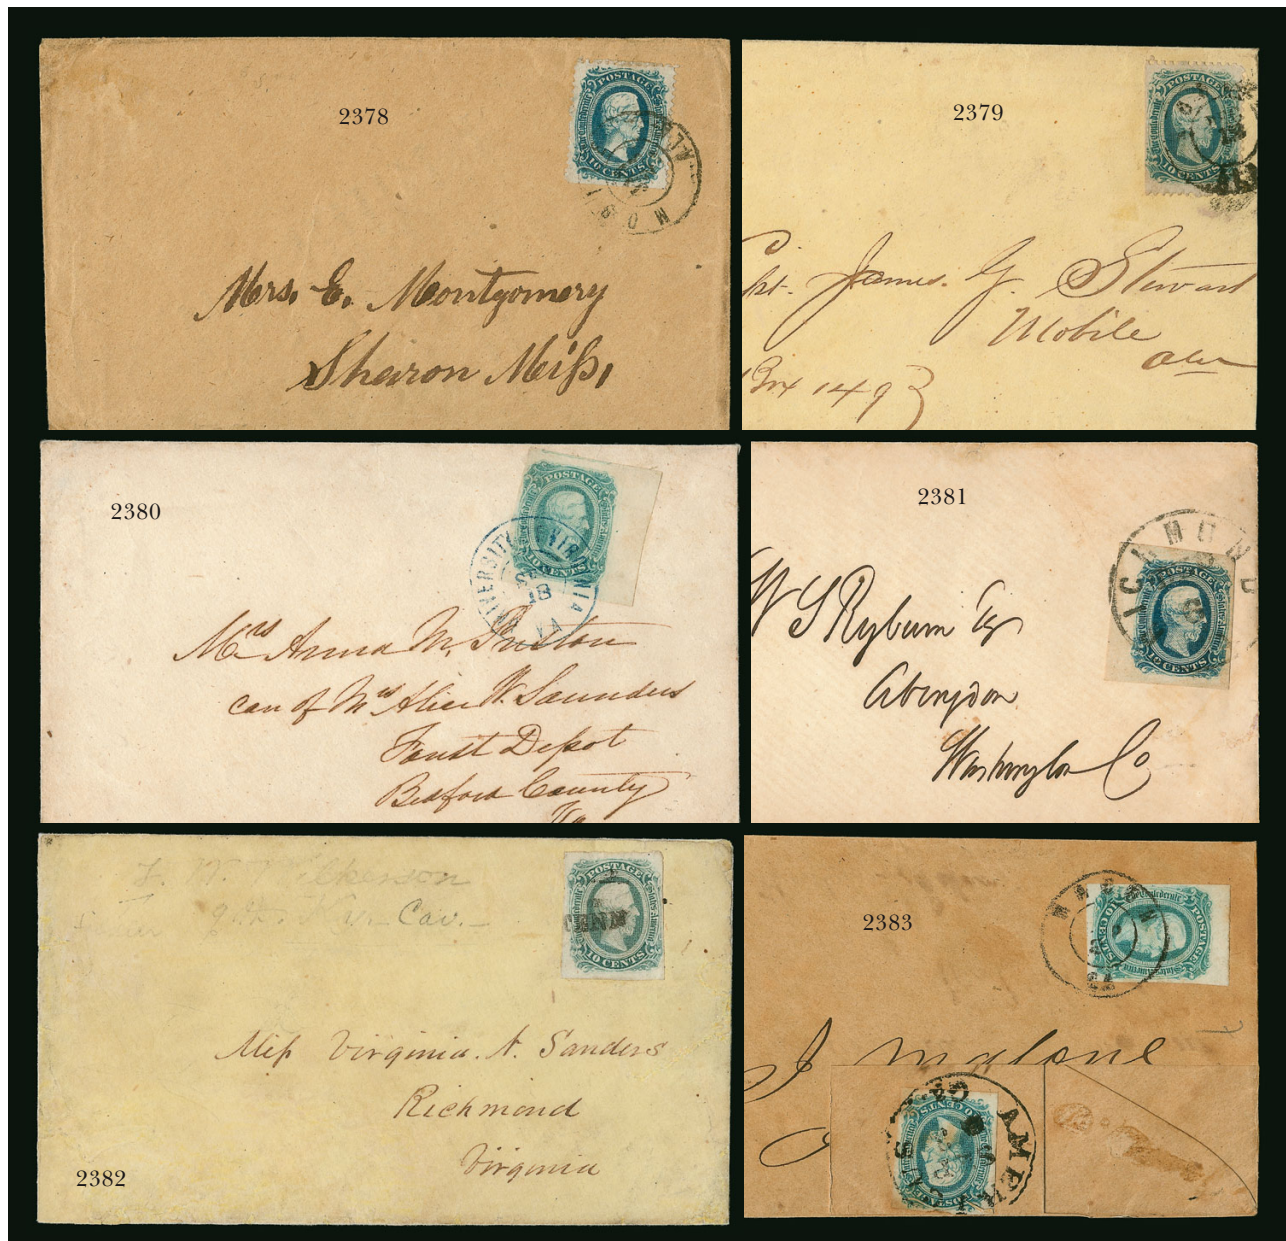 2378
POSTAGE
10 CENTS
MOBI
Mrs. E. Montgomery
Sharon Miſs,
2379
POSTAGE
10 CENTS
James. G. Stewart
Mobile
Ala
Box 1493
2380
POSTAGE
10 CENTS
UNIVERSITY OF VIRGINIA
VA
Mrs Anna M. Preston
care of Mrs Alice W. Saunders
Forest Depot
Bedford County
Va
2381
POSTAGE
10 CENTS
RICHMOND
W S Ryburn Esq
Abingdon
Washington Co
Wilkerson
9th Ky Cav.
POSTAGE
TENN
10 CENTS
Miſs Virginia. A. Sanders
Richmond
Virginia
2382
2383
MACON
GA
POSTAGE
10 CENTS
J Malone
AMERICUS
10 CENTS